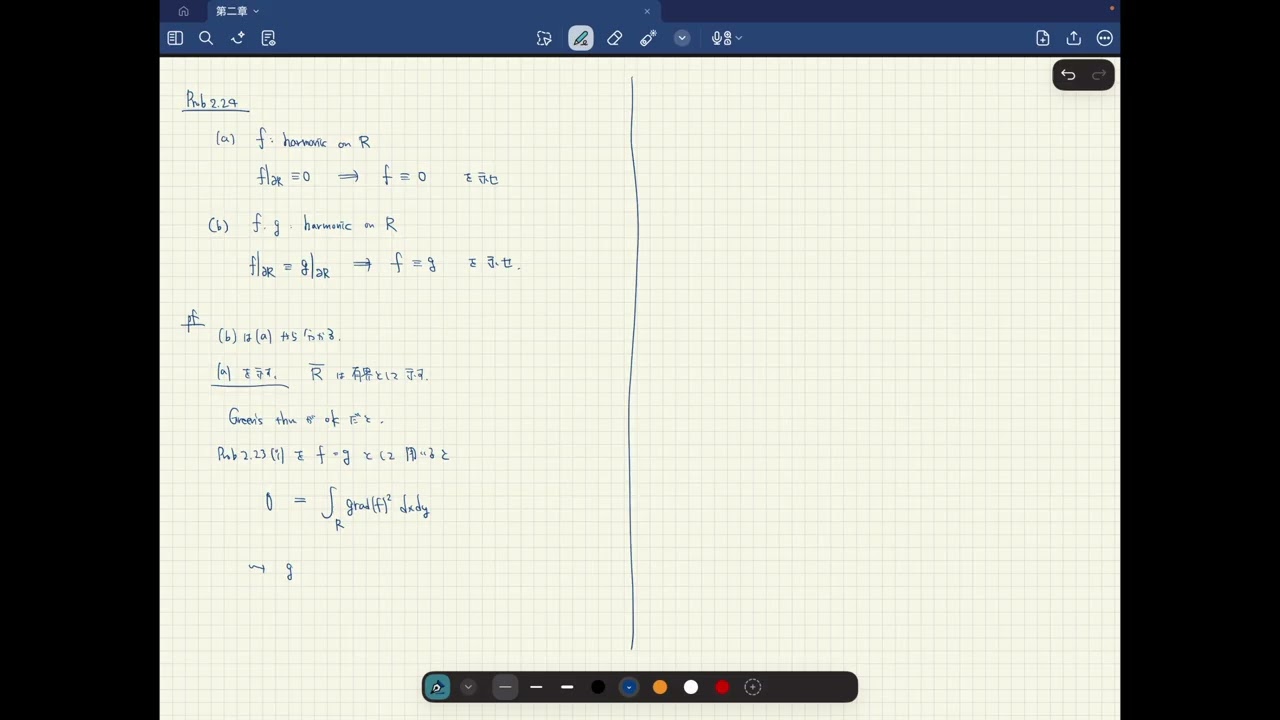 第二章
Prob 2.24
(a) f : harmonic on R
f|∂R ≡ 0 ⟹ f ≡ 0 を示せ
(b) f, g : harmonic on R
f|∂R ≡ g|∂R ⟹ f ≡ g を示せ.
pf
(b) は (a) から分かる.
(a) を示す. R̅ は有界として示す.
Green's thm が ok だと.
Prob 2.23 (i) を f = g として用いると
0 = ∫_R grad(f)² dxdy
⇝ g